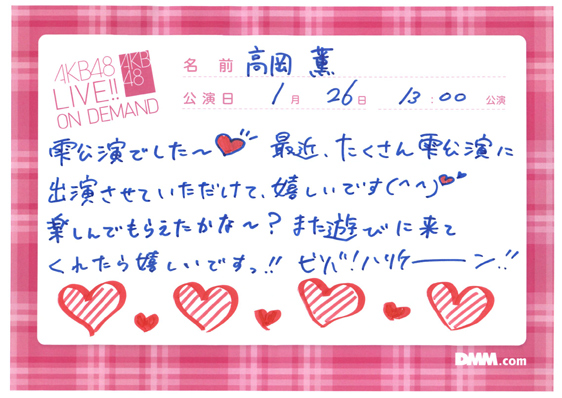 AKB48
LIVE!!
ON DEMAND
AKB
48
名 前 高岡 薫
公演日 1月 26日 13:00 公演
雫公演でした〜 最近、たくさん雫公演に
出演させていただけて、嬉しいです(^^)
楽しんでもらえたかな〜？また遊びに来て
くれたら嬉しいですっ!! ビバ！ハリケーーン!!
DMM.com